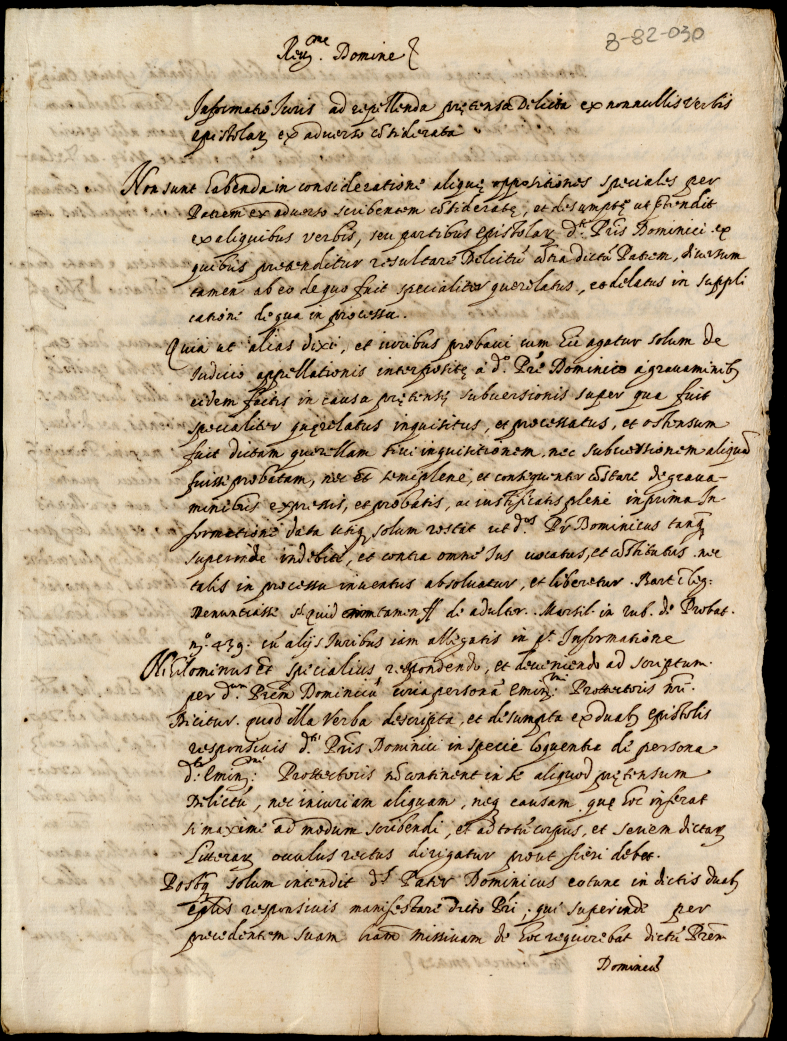 8-82-030
Reu.me Domine
Informatio Iuris ad repellenda prętensa Delicta ex nonnullis verbis
epistolar. ex aduerso cōsiderata
Non sunt habenda in consideratione aliquę oppositiones speciales per
Patrem ex aduerso scribentem cōsideratę, et desumptę ut prętendit
ex aliquibus verbis, seu partibus epistolar. d.ti Pris Dominici ex
quibus prętenditur resultare Delictū cōtra dictū Patrem, diuersum
tamen ab eo de quo fuit specialiter querelatus, eo delatus in suppli
catione de qua in processu.
Quia ut alias dixi, et iuribus probaui cum hic agatur solum de
Iudicio appellationis interpositę à d.o Pre Dominico à grauaminib.
eidem factis in causa prętensę subuersionis super qua fuit
specialiter quęrelatus inquisitus, et processatus, et ostensum
fuit dictam querellam siue inquisitionem, nec subuersionem aliquā
fuisse probatam, nec et semiplene, et consequenter cōstare de graua-
minibus expressis, et probatis, ac iustificatis plenè in prima In
formatione data utiq. solum restit ut d.us Pr Dominicus tanq.
superinde indebitè, et contra omne Ius uocatus, et cōstitutus nec
talis in processu inuentus absoluatur, et liberetur. Bart. ī leg.
Denuntiasse §. quid tamen ff de adulter. Marsil. in rub. de Probat.
n.o 439. cū alijs Iuribus iam allegatis in p.a Informatione
Nihilominus et specialius respondendo, et deueniendo ad scriptum
per d.um Prem Dominicū circa persona Emin.mi Protectoris nri.
Dicitur quod illa Verba descripta, et desumpta ex duab. epistolis
responsiuis d.ti Pris Dominici in specie loquentia de persona
d.ti Emin.mi Protectoris nō continent in se aliquod prętensum
Delictū, nec iniuriam aliquam, neq. causam quę hoc inferat
si maximè ad modum scribendi, et ad totū corpus, et seriem dictar.
Litterar. occulus rectus dirigatur prout fieri debet.
Postq. solum intendit d.s Pater Dominicus eo tunc in dictis duab.
eplis responsiuis manifestare dicto Pri, qui superinde per
precedentem suam lram missiuam de hoc requirebat dictū Prem
Dominicū